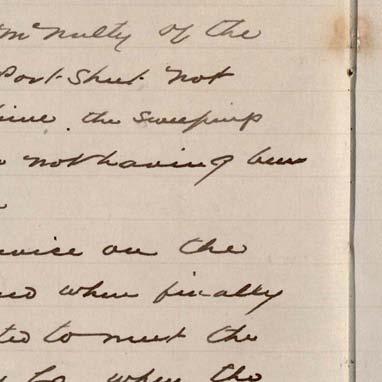 McNulty of the
Port Sheet not
the sweepings
not having been
on the
when finally
to meet the
Co when the